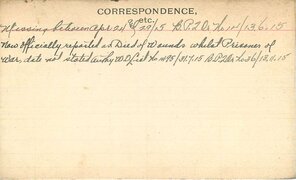 CORRESPONDENCE,
etc.
Missing between Apr 24 & 29/15 B.P.L. 13.6.15
Now officially reported as Died of Wounds whilst Prisoner of
War, date not stated 31.7.15